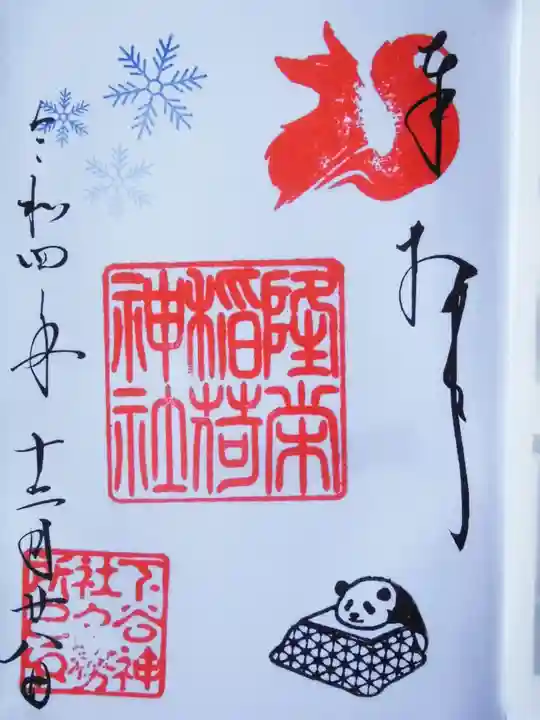 奉拝
隆栄
稲荷
神社
令和四年十二月廿八日
下谷神
社々務